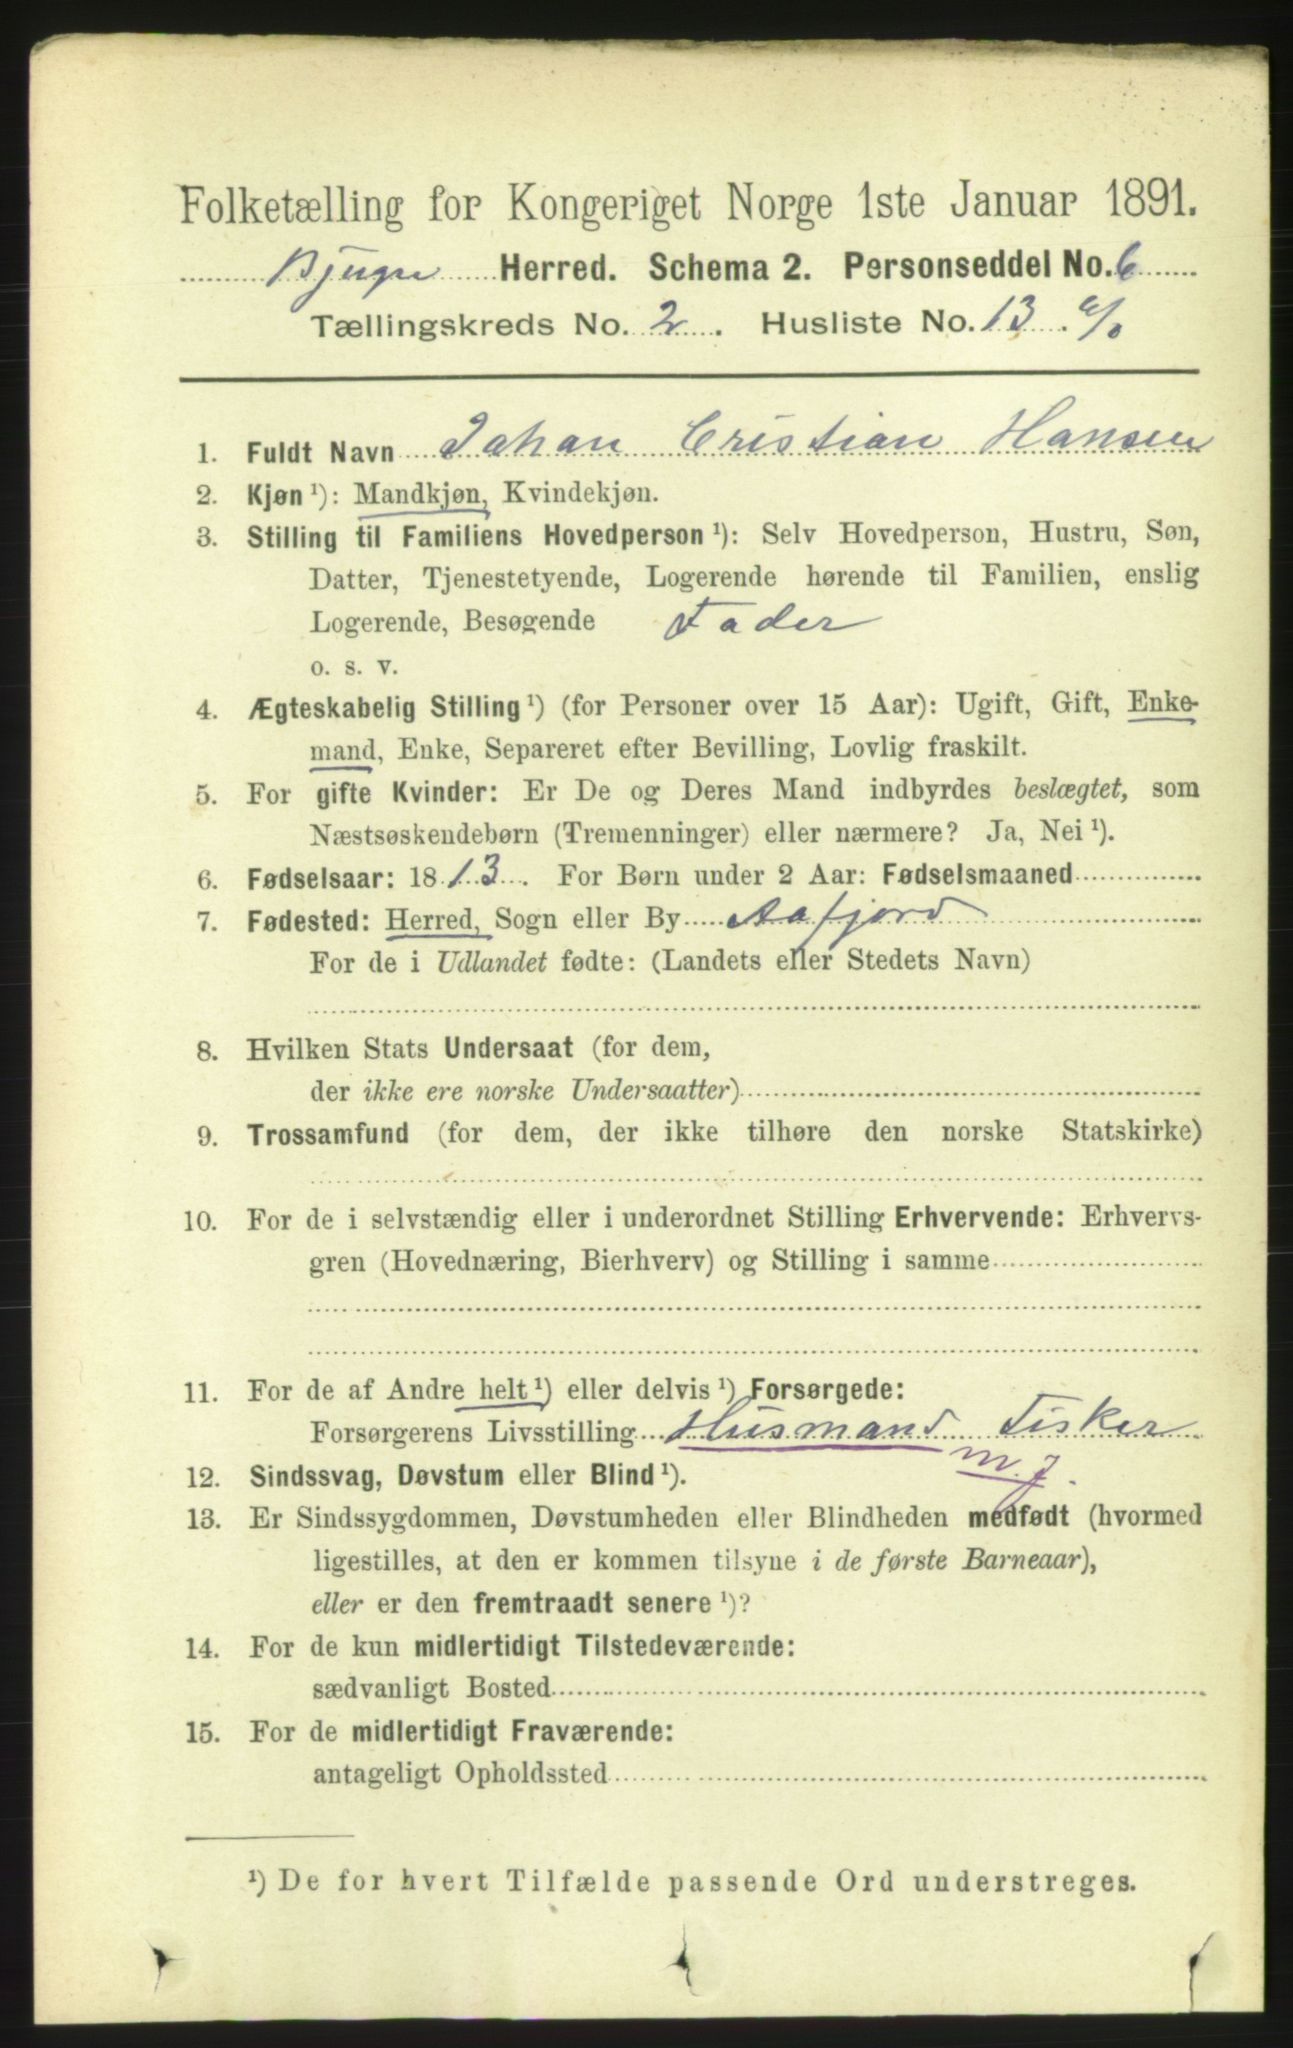 Folketælling for Kongeriget Norge 1ste Januar 1891.
Bjugn Herred. Schema 2. Personseddel No. 6
Tællingskreds No. 2. Husliste No. 13.
1. Fuldt Navn Johan Cristian Hansen
2. Kjøn ¹): Mandkjøn, Kvindekjøn.
3. Stilling til Familiens Hovedperson ¹): Selv Hovedperson, Hustru, Søn,
Datter, Tjenestetyende, Logerende hørende til Familien, enslig
Logerende, Besøgende Fader
o. s. v.
4. Ægteskabelig Stilling ¹) (for Personer over 15 Aar): Ugift, Gift, Enke-
mand, Enke, Separeret efter Bevilling, Lovlig fraskilt.
5. For gifte Kvinder: Er De og Deres Mand indbyrdes beslægtet, som
Næstsøskendebørn (Tremenninger) eller nærmere? Ja, Nei ¹).
6. Fødselsaar: 1813. For Børn under 2 Aar: Fødselsmaaned
7. Fødested: Herred, Sogn eller By Aafjord
For de i Udlandet fødte: (Landets eller Stedets Navn)
8. Hvilken Stats Undersaat (for dem,
der ikke ere norske Undersaatter)
9. Trossamfund (for dem, der ikke tilhøre den norske Statskirke)
10. For de i selvstændig eller i underordnet Stilling Erhvervende: Erhvervs-
gren (Hovednæring, Bierhverv) og Stilling i samme
11. For de af Andre helt ¹) eller delvis ¹) Forsørgede:
Forsørgerens Livsstilling Husmand Fisker
m. J.
12. Sindssvag, Døvstum eller Blind ¹).
13. Er Sindssygdommen, Døvstumheden eller Blindheden medfødt (hvormed
ligestilles, at den er kommen tilsyne i de første Barneaar),
eller er den fremtraadt senere ¹)?
14. For de kun midlertidigt Tilstedeværende:
sædvanligt Bosted
15. For de midlertidigt Fraværende:
antageligt Opholdssted
¹) De for hvert Tilfælde passende Ord understreges.